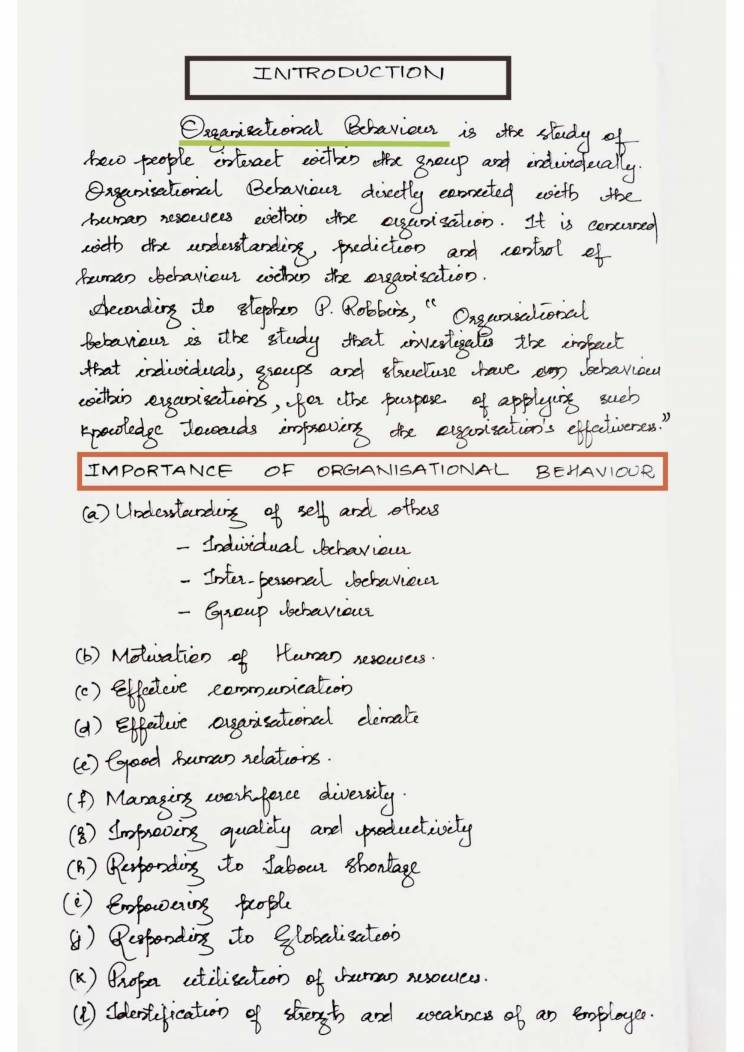 INTRODUCTION
Organisational Behaviour is the study of
how people interact within the group and individually.
Organisational Behaviour directly connected with the
human resources within the organisation. It is concerned
with the understanding, prediction and control of
human behaviour within the organisation.
According to Stephen P. Robbins, " Organisational
behaviour is the study that investigates the impact
that individuals, groups and structure have on behaviour
within organisations, for the purpose of applying such
knowledge towards improving the organisation's effectiveness."
IMPORTANCE OF ORGANISATIONAL BEHAVIOUR
(a) Understanding of self and others
- Individual behaviour
- Inter-personal behaviour
- Group behaviour
(b) Motivation of Human resources.
(c) Effective communication
(d) Effective organisational climate
(e) Good human relations.
(f) Managing workforce diversity.
(g) Improving quality and productivity
(h) Responding to Labour shortage
(i) Empowering people
(j) Responding to Globalisation
(k) Proper utilisation of human resources.
(l) Identification of strength and weakness of an employee.